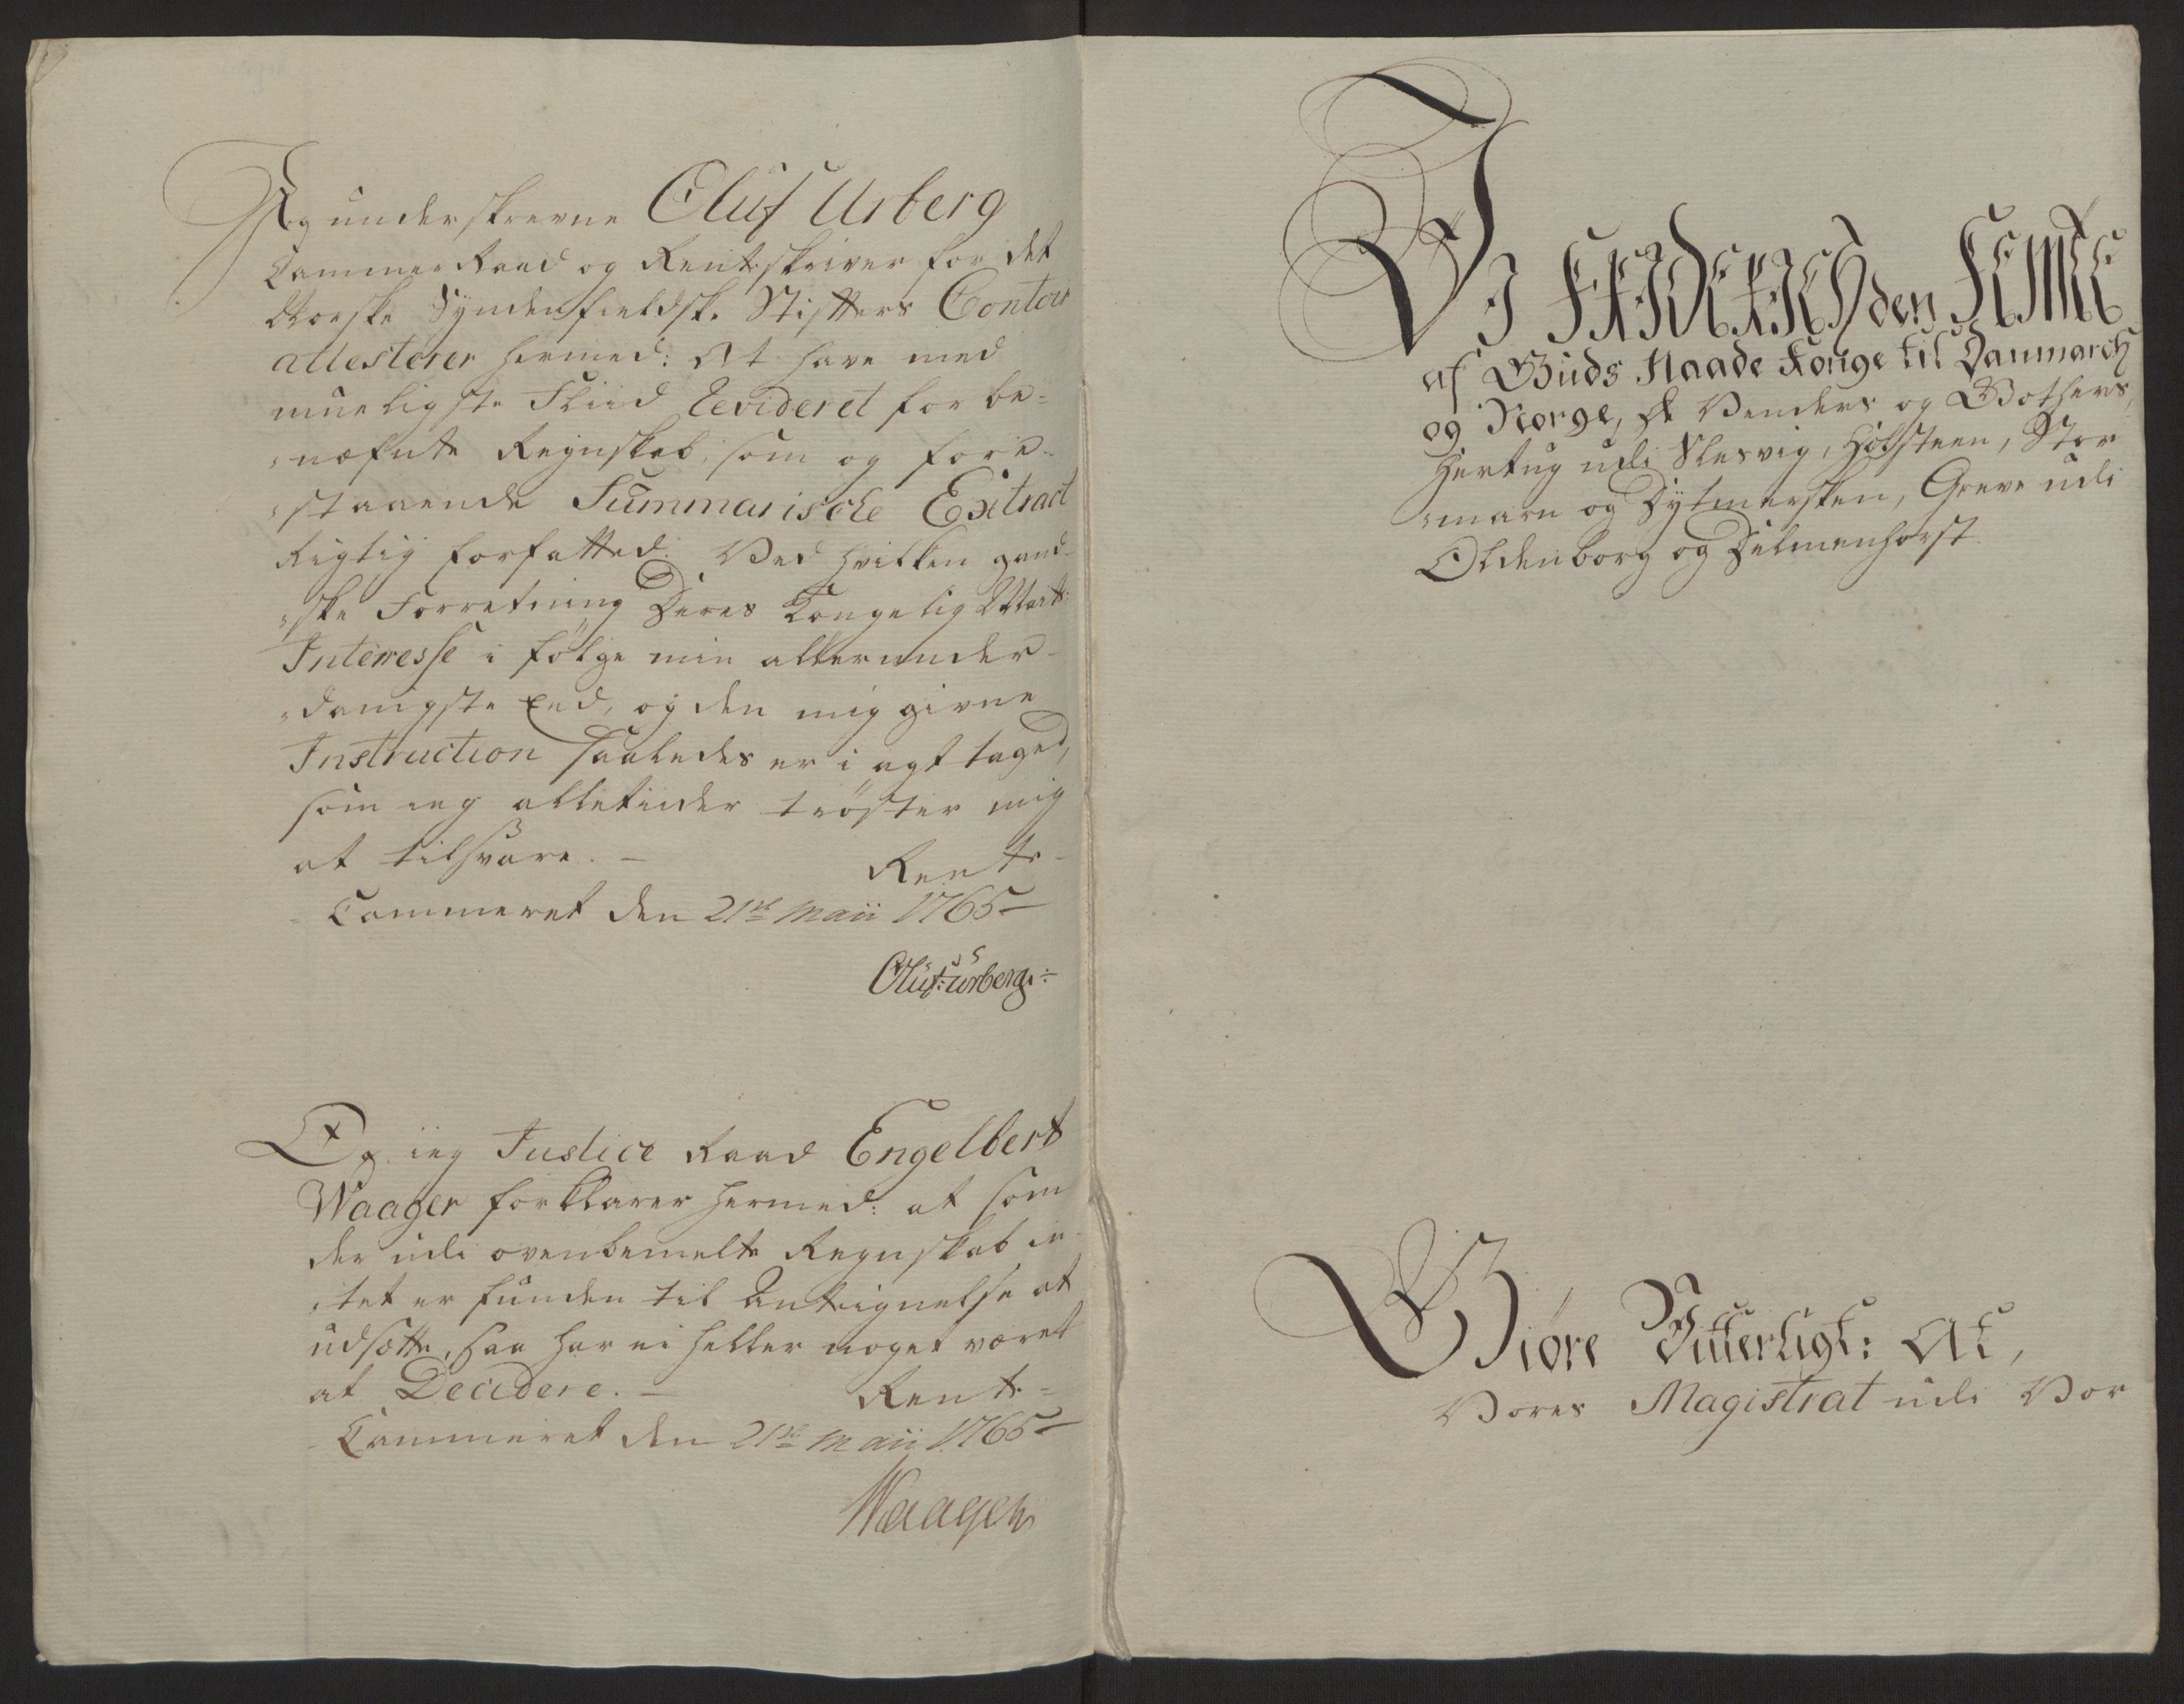 Jeg underskrevne Oluf Urberg
Cammer Raad og Rentskriver for det
Norske Syndenfieldsk. Stifters Contoir
attesterer hermed: At have med
mueligste Fliid Revideret for be-
næfnte Regnskab, som og fore-
staaende Summarische Extract
Rigtig forfatted. Ved hvilken gand-
ske Forretning Deres Kongelig Mayts:
Interesse i følge min allerunder-
danigste Eed, og den mig givne
Instruction saaledes er i agt taged,
som ieg alletiider trøster mig
at tilsvare. –
Rente-
Cammeret den 21de Maii 1765
Oluf Urberg
Og ieg Justice Raad Engelbert
Waager forklarer hermed: at som
der udi ovenbemelte Regnskab in-
tet er funden til Antegnelse at
udsætte, saa har ei heller noget været
at Decidere. –
Rente-
Cammeret den 21de Maii 1765
Waager
VI FRIDERICH den FEMTE
af Guds Naade Konge til Danmarch
og Norge, de Venders og Gothers,
Hertug udi Slesvig, Holsteen, Stor-
marn og Dytmersken, Greve udi
Oldenborg og Delmenhorst.
Giøre Vitterligt: At,
Vores Magistrat udi Vor